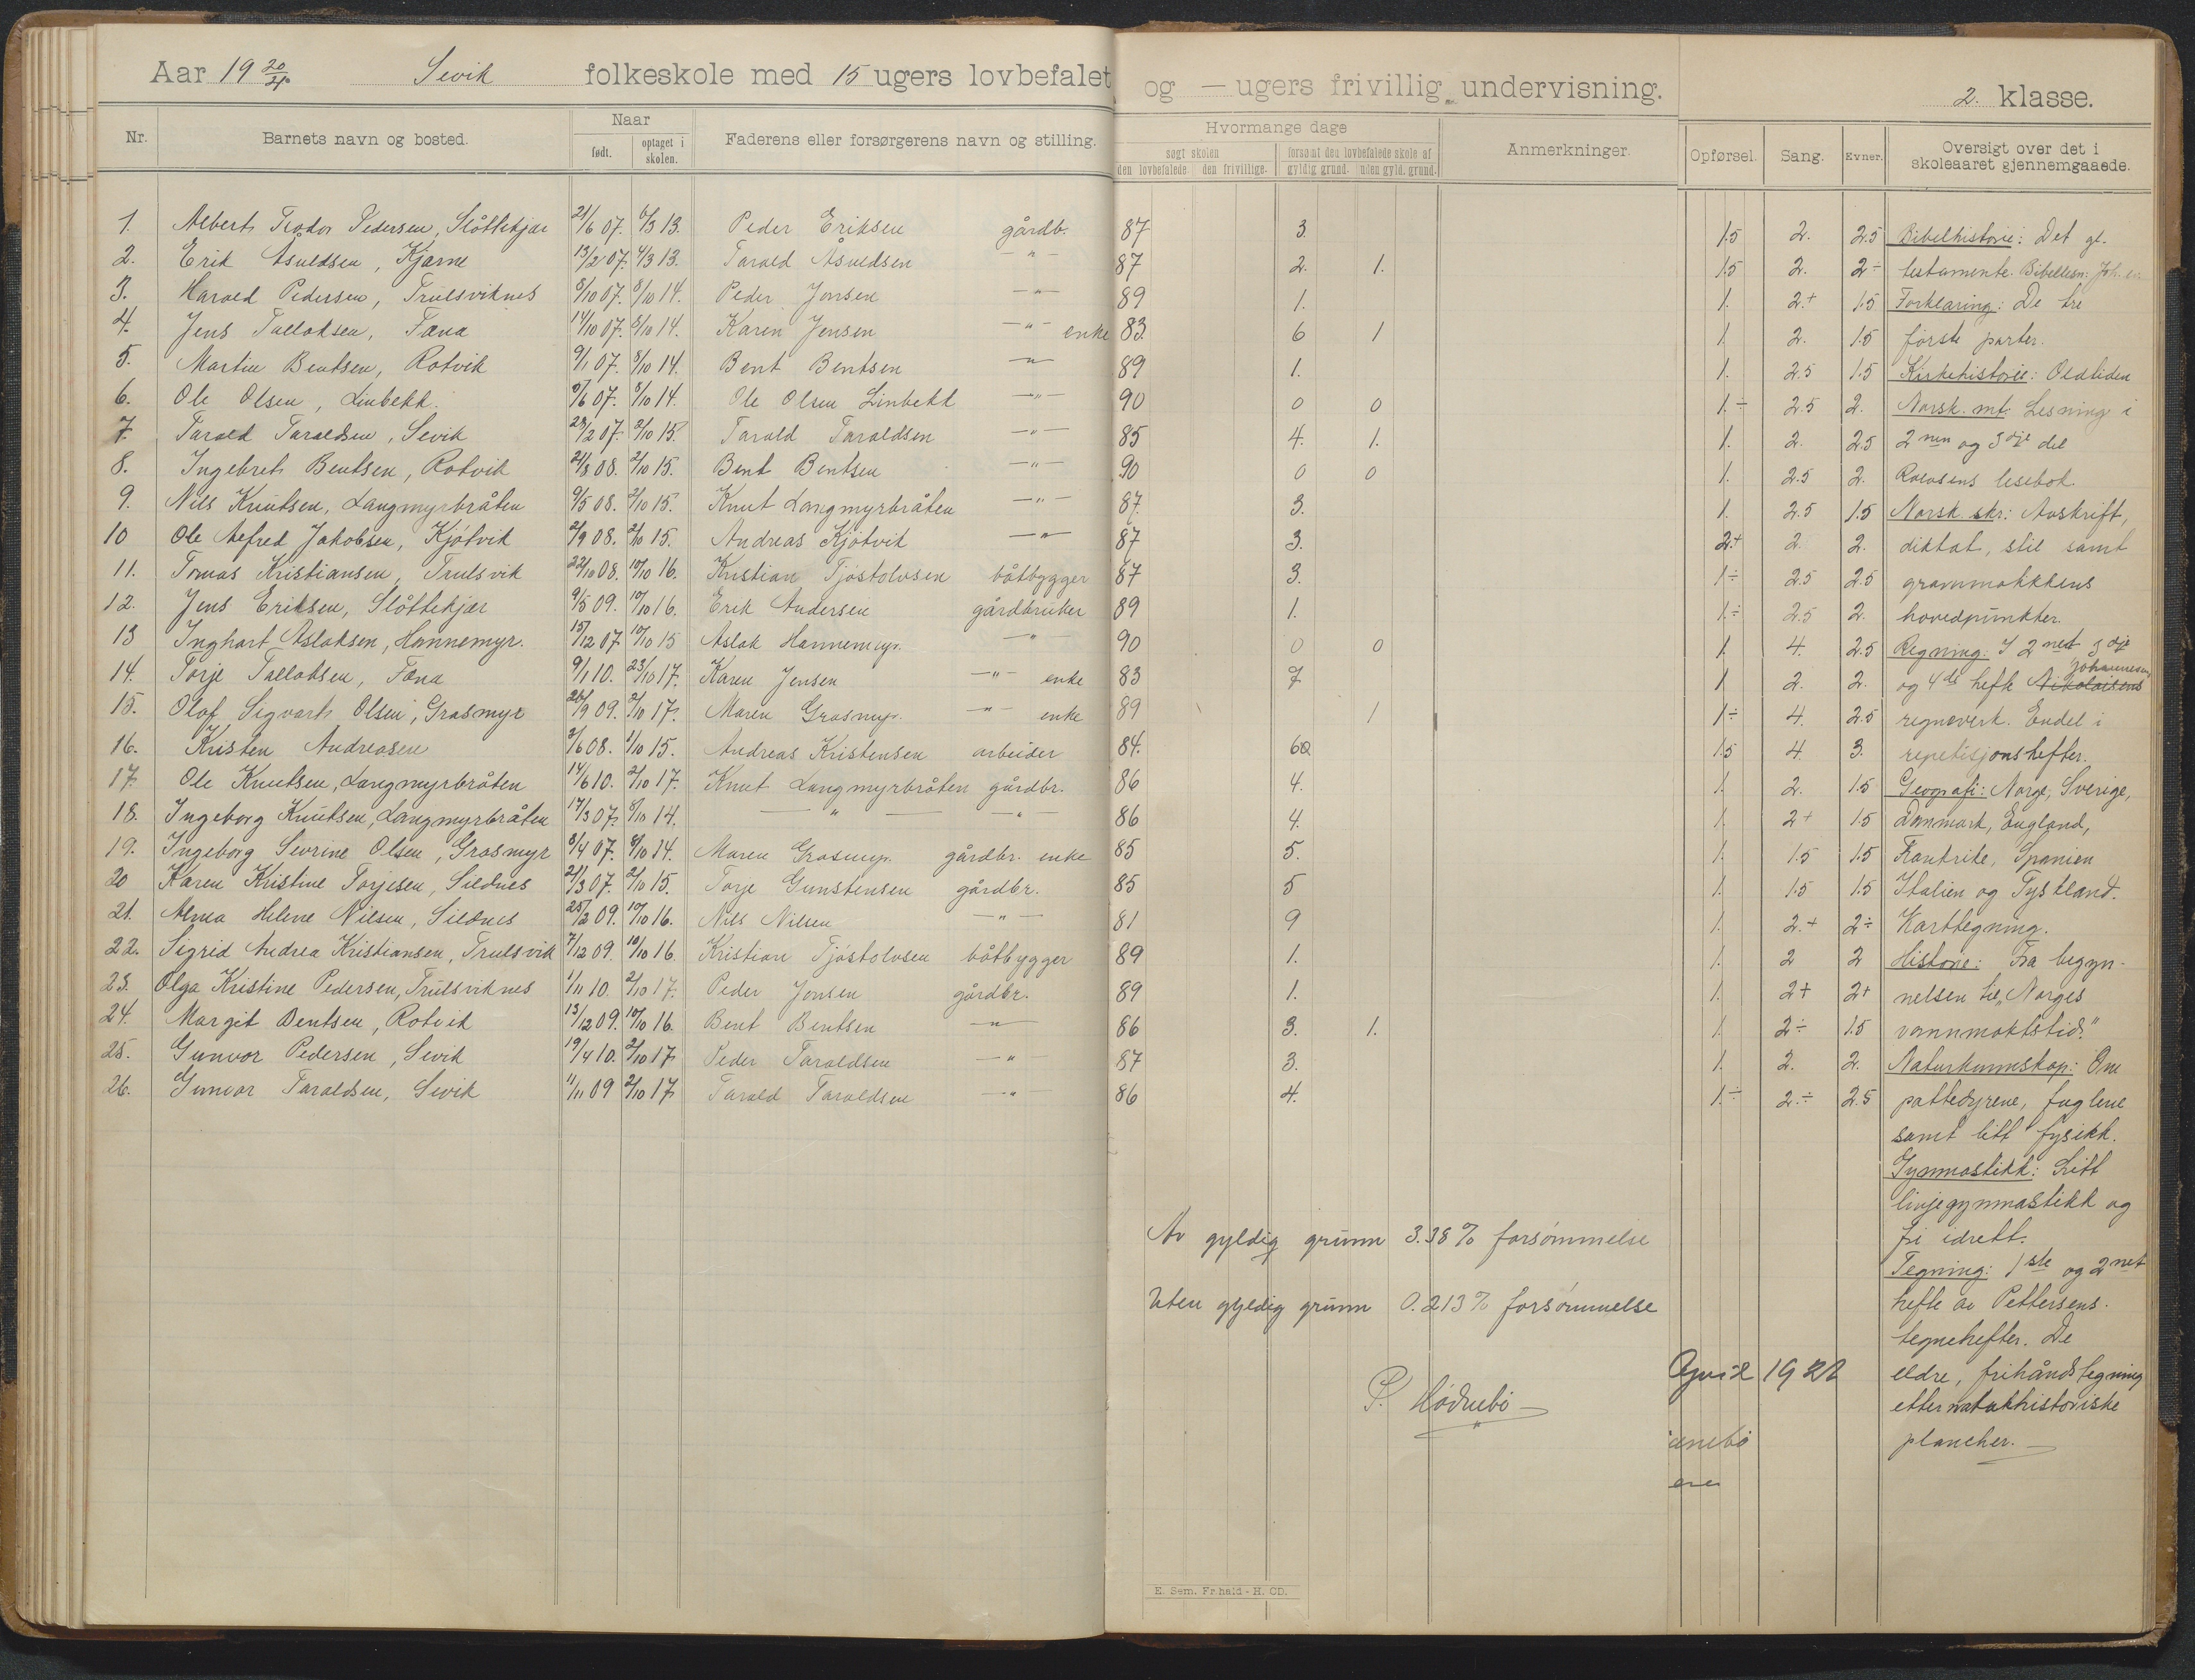 Aar 19 20/21. Sevik folkeskole med 15 ugers lovbefalet og — ugers frivillig undervisning. 2. klasse.
Nr. Barnets navn og bosted. Naar født. optaget i skolen. Faderens eller forsørgerens navn og stilling. Hvormange dage søgt skolen den lovbefalede. den frivillige. forsømt den lovbefalede skole af gyldig grund. uden gyld. grund. Anmerkninger. Opførsel. Sang. Evner. Oversigt over det i skoleaaret gjennemgaaede.
1. Albert Teodor Pedersen, Slåttekjær 21/6 07. 6/3 13. Peder Eriksen gårdb. 87 3. 1.5 2. 2.5 Bibelhistorie: Det gl.
2. Erik Åsuldsen, Kjærne 13/2 07. 4/3 13. Tarald Åsuldsen —"— 87 2. 1. 1.5 2. 2÷ testamente. Bibellesn: Joh. ev.
3. Harald Pedersen, Trulsviknes 8/10 07. 8/10 14. Peder Jonsen —"— 89 1. 1. 2.+ 1.5 Forklaring: De tre
4. Jens Tallaksen, Fæna 14/10 07. 8/10 14. Karen Jensen —"— enke 83. 6 1 1. 2. 1.5 første parter.
5. Martin Bentsen, Rotvik 9/1 07. 8/10 14. Bent Bentsen —"— 89 1. 1. 2.5 1.5 Kirkehistorie: Oldtiden
6. Ole Olsen, Linbekk. 9/6 07. 8/10 14. Ole Olsen Linbekk —"— 90 0 0 1.÷ 2.5 2. Norsk. mt. Lesning i
7. Tarald Taraldsen, Sevik 28/2 07. 2/10 15. Tarald Taraldsen —"— 85 4. 1. 1. 2. 2.5 2nen og 3dje del
8. Ingebret Bentsen, Rotvik 21/8 08. 2/10 15. Bent Bentsen —"— 90 0 0 1. 2.5 2. Rolvsens lesebok
9. Nils Knutsen, Langmyrbråten 9/5 08. 2/10 15. Knut Langmyrbråten —"— 87. 3. 1. 2.5 1.5 Norsk. skr: Avskrift,
10 Ole Alfred Jakobsen, Kjøtvik 2/9 08. 2/10 15. Andreas Kjøtvik —"— 87 3. 2+ 2. 2. diktat, stil samt
11. Tomas Kristiansen, Trulsvik 22/10 08. 10/10 16. Kristian Tjøstolvsen båtbygger 87 3. 1÷ 2.5 2.5 grammatikkens
12. Jens Eriksen, Slåttekjær 9/5 09. 10/10 16. Erik Andersen gårdbruker 89 1. 1.÷ 2.5 2. hovedpunkter.
13 Inghart Aslaksen, Hannemyr. 15/12 07 10/10 15 Aslak Hannemyr. —"— 90 0 0 1. 4. 2.5 Regning: I 2net 3dje
14. Torje Tallaksen, Fæna 9/1 10. 23/10 17. Karen Jensen —"— enke 83 7 1 2. 2. og 4de hefte Nikolaisens Johannesens
15. Olaf Sigvart Olsen, Grasmyr 26/9 09. 2/10 17. Maren Grasmyr. —"— enke 89 1 1÷ 4. 2.5 regneverk. Endel i
16. Kristen Andreasen 2/6 08. 1/10 15. Andreas Kristensen arbeider 84. 6 1.5 4 3. repetisjonshefter.
17. Ole Knutsen, Langmyrbråten 14/6 10. 2/10 17. Knut Langmyrbråten gårdbr. 86 4. 1. 2. 1.5 Geografi: Norge, Sverige,
18. Ingeborg Knutsen, Langmyrbråten 17/3 07. 8/10 14. — " — —"— 86 4. 1. 2+ 1.5 Danmark, England,
19. Ingeborg Sevrine Olsen, Grasmyr 3/4 07. 8/10 14. Maren Grasmyr. gårdbr. enke 85 5. 1. 1.5 1.5 Frankrike, Spanien
20 Karen Kristine Torjesen, Sildnes 21/3 07. 2/10 15. Torje Gunstensen gårdbr. 85 5 1. 1.5 1.5 Italien og Tyskland.
21. Alma Helene Nilsen, Sildnes 25/2 09. 10/10 16. Nils Nilsen —"— 81 9 1. 2.+ 2÷ Karttegning.
22. Sigrid Andrea Kristiansen, Trulsvik 7/12 09. 10/10 16. Kristian Tjøstolvsen båtbygger 89 1. 1. 2 2 Historie: Fra begyn-
23. Olga Kristine Pedersen, Trulsviknes 1/11 10. 2/10 17. Peder Jonsen gårdbr. 89 1. 1. 2+ 2+ nelsen til „Norges
24. Margit Bentsen, Rotvik 13/12 09. 10/10 16. Bent Bentsen —"— 86 3. 1. 1. 2÷ 1.5 vannmaktstid."
25. Gunvor Pedersen, Sevik 19/4 10. 2/10 17 Peder Taraldsen —"— 87 3. 1. 2. 2. Naturkunnskap: Om
26. Gunvor Taraldsen, Sevik 11/11 09 2/10 17 Tarald Taraldsen —"— 86 4. 1.÷ 2.÷ 2.5 pattedyrene, fuglene
samt litt fysikk.
Gymnastikk: Litt
linjegymnastikk og
fri idrett.
Tegning: 1ste og 2net
hefte av Pettersens.
tegnehefter. De
eldre, frihåndstegning
etter naturhistoriske
plancher.
Av gyldig grunn 3.38% forsømmelse
Uten gyldig grunn 0.213% forsømmelse
P. Hødnebø
April 1921
ænebø
E. Sem. Fr.hald - H. OD.